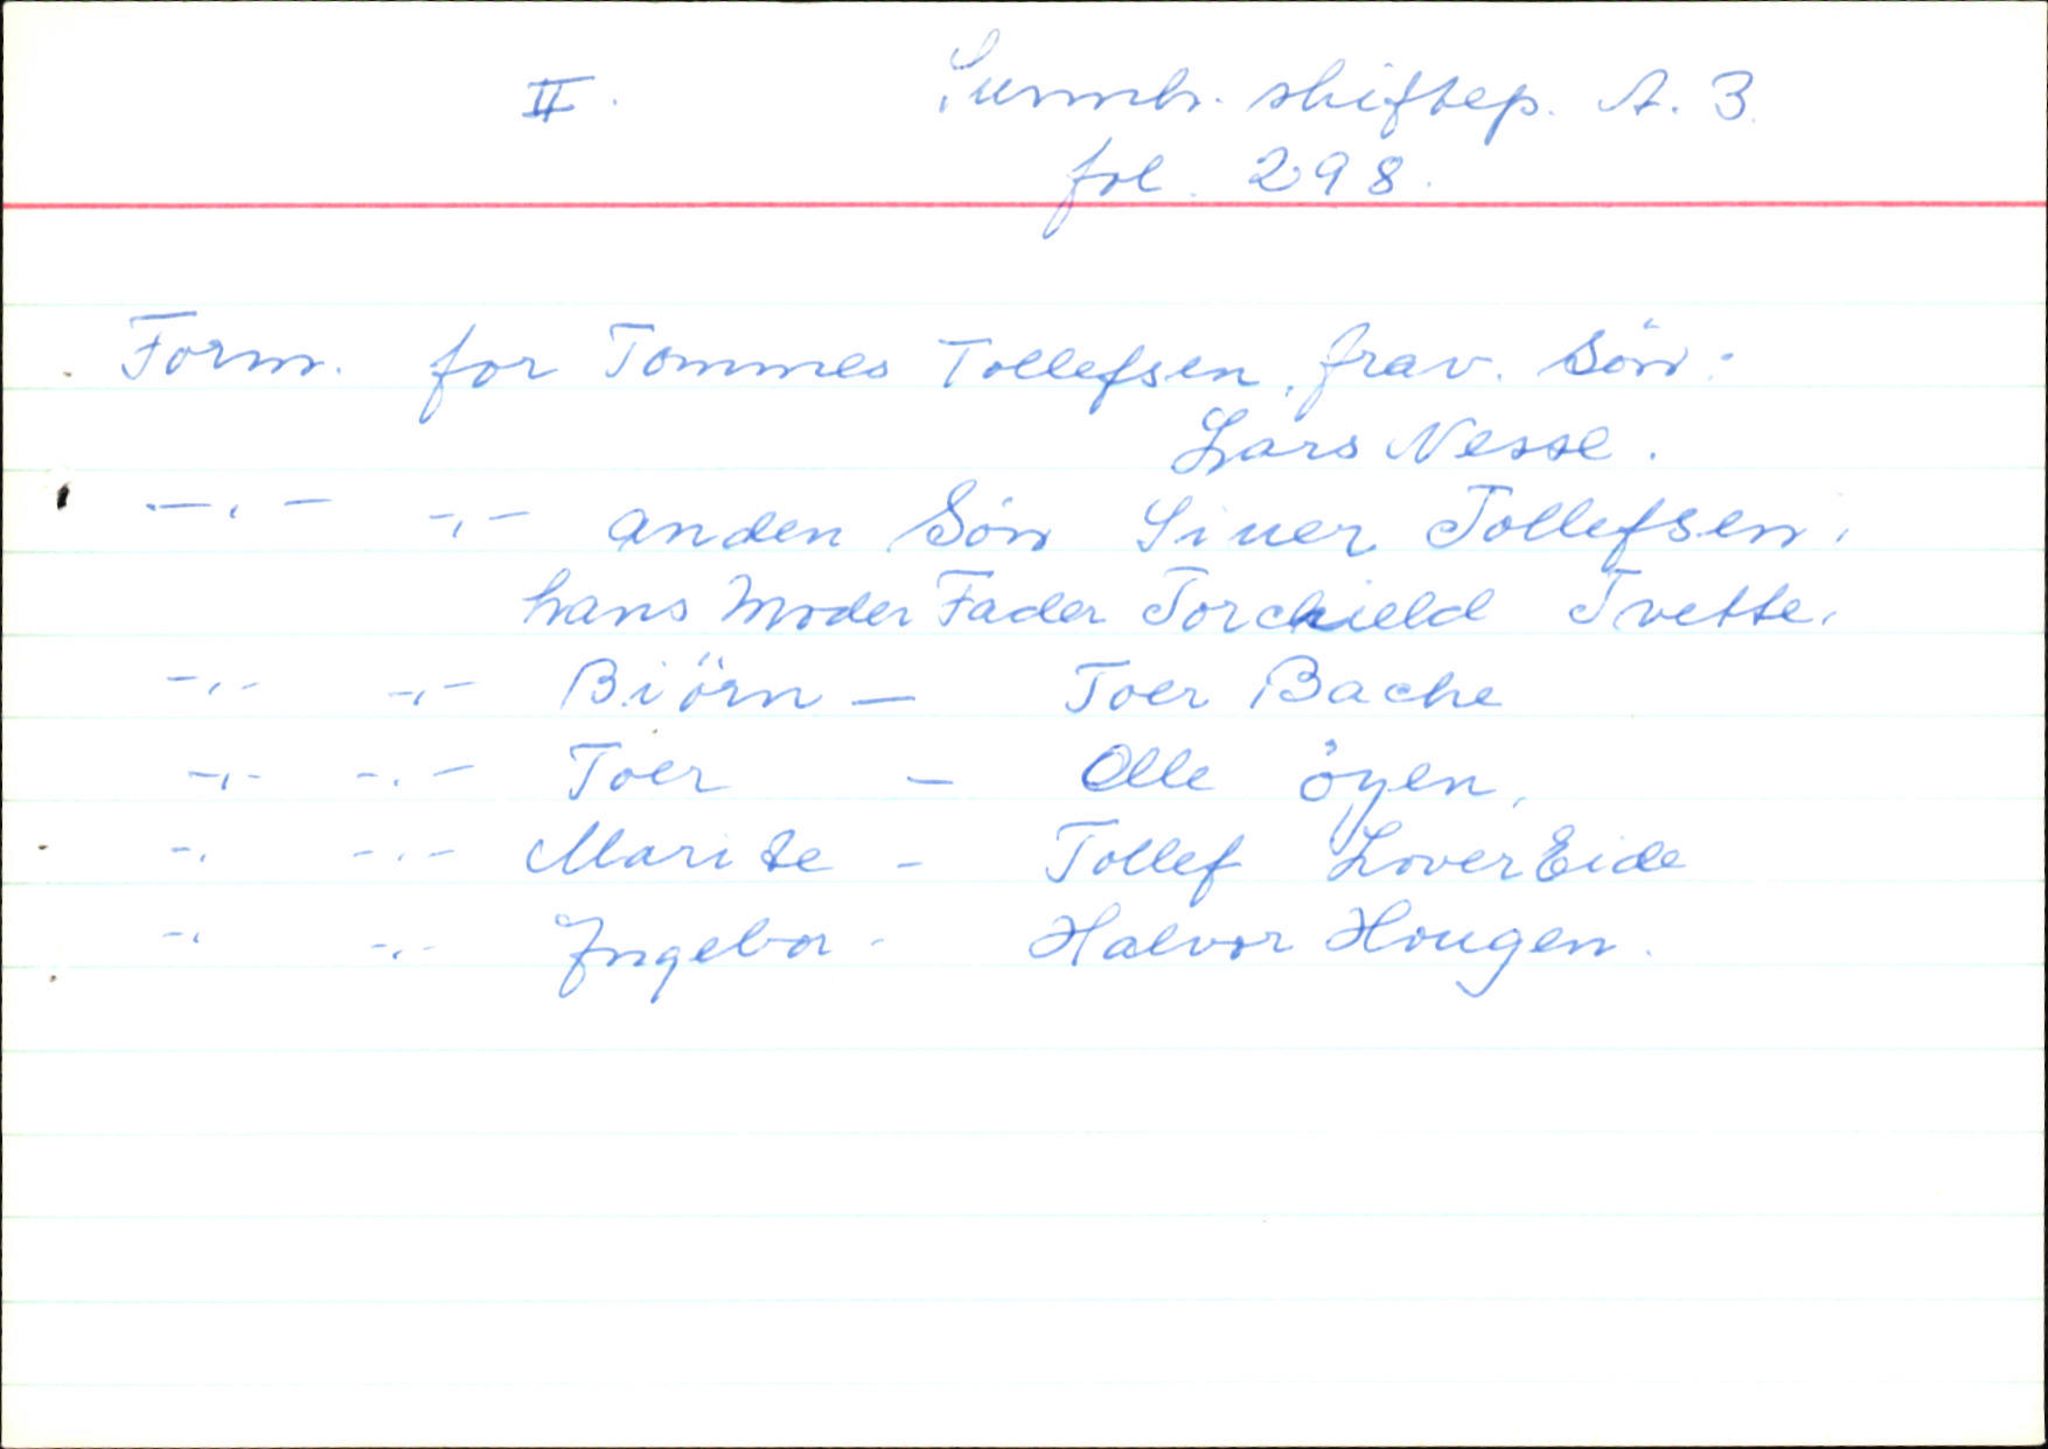 II. Sunndr. skiftep. A. 3.
fol. 298.
Form. for Tommes Tollefsen, frav. Sön:
Lars Nesse.
—.— -.- anden Sön Siuer Tollefsen,
hans Moder Fader Torchield Tvette.
-.- -.- Biörn — Toer Bache
-.- -.- Toer — Olle öyen,
-. -.- Marite - Tollef LoverEide
-. -.- Ingebor - Halvor Hougen.